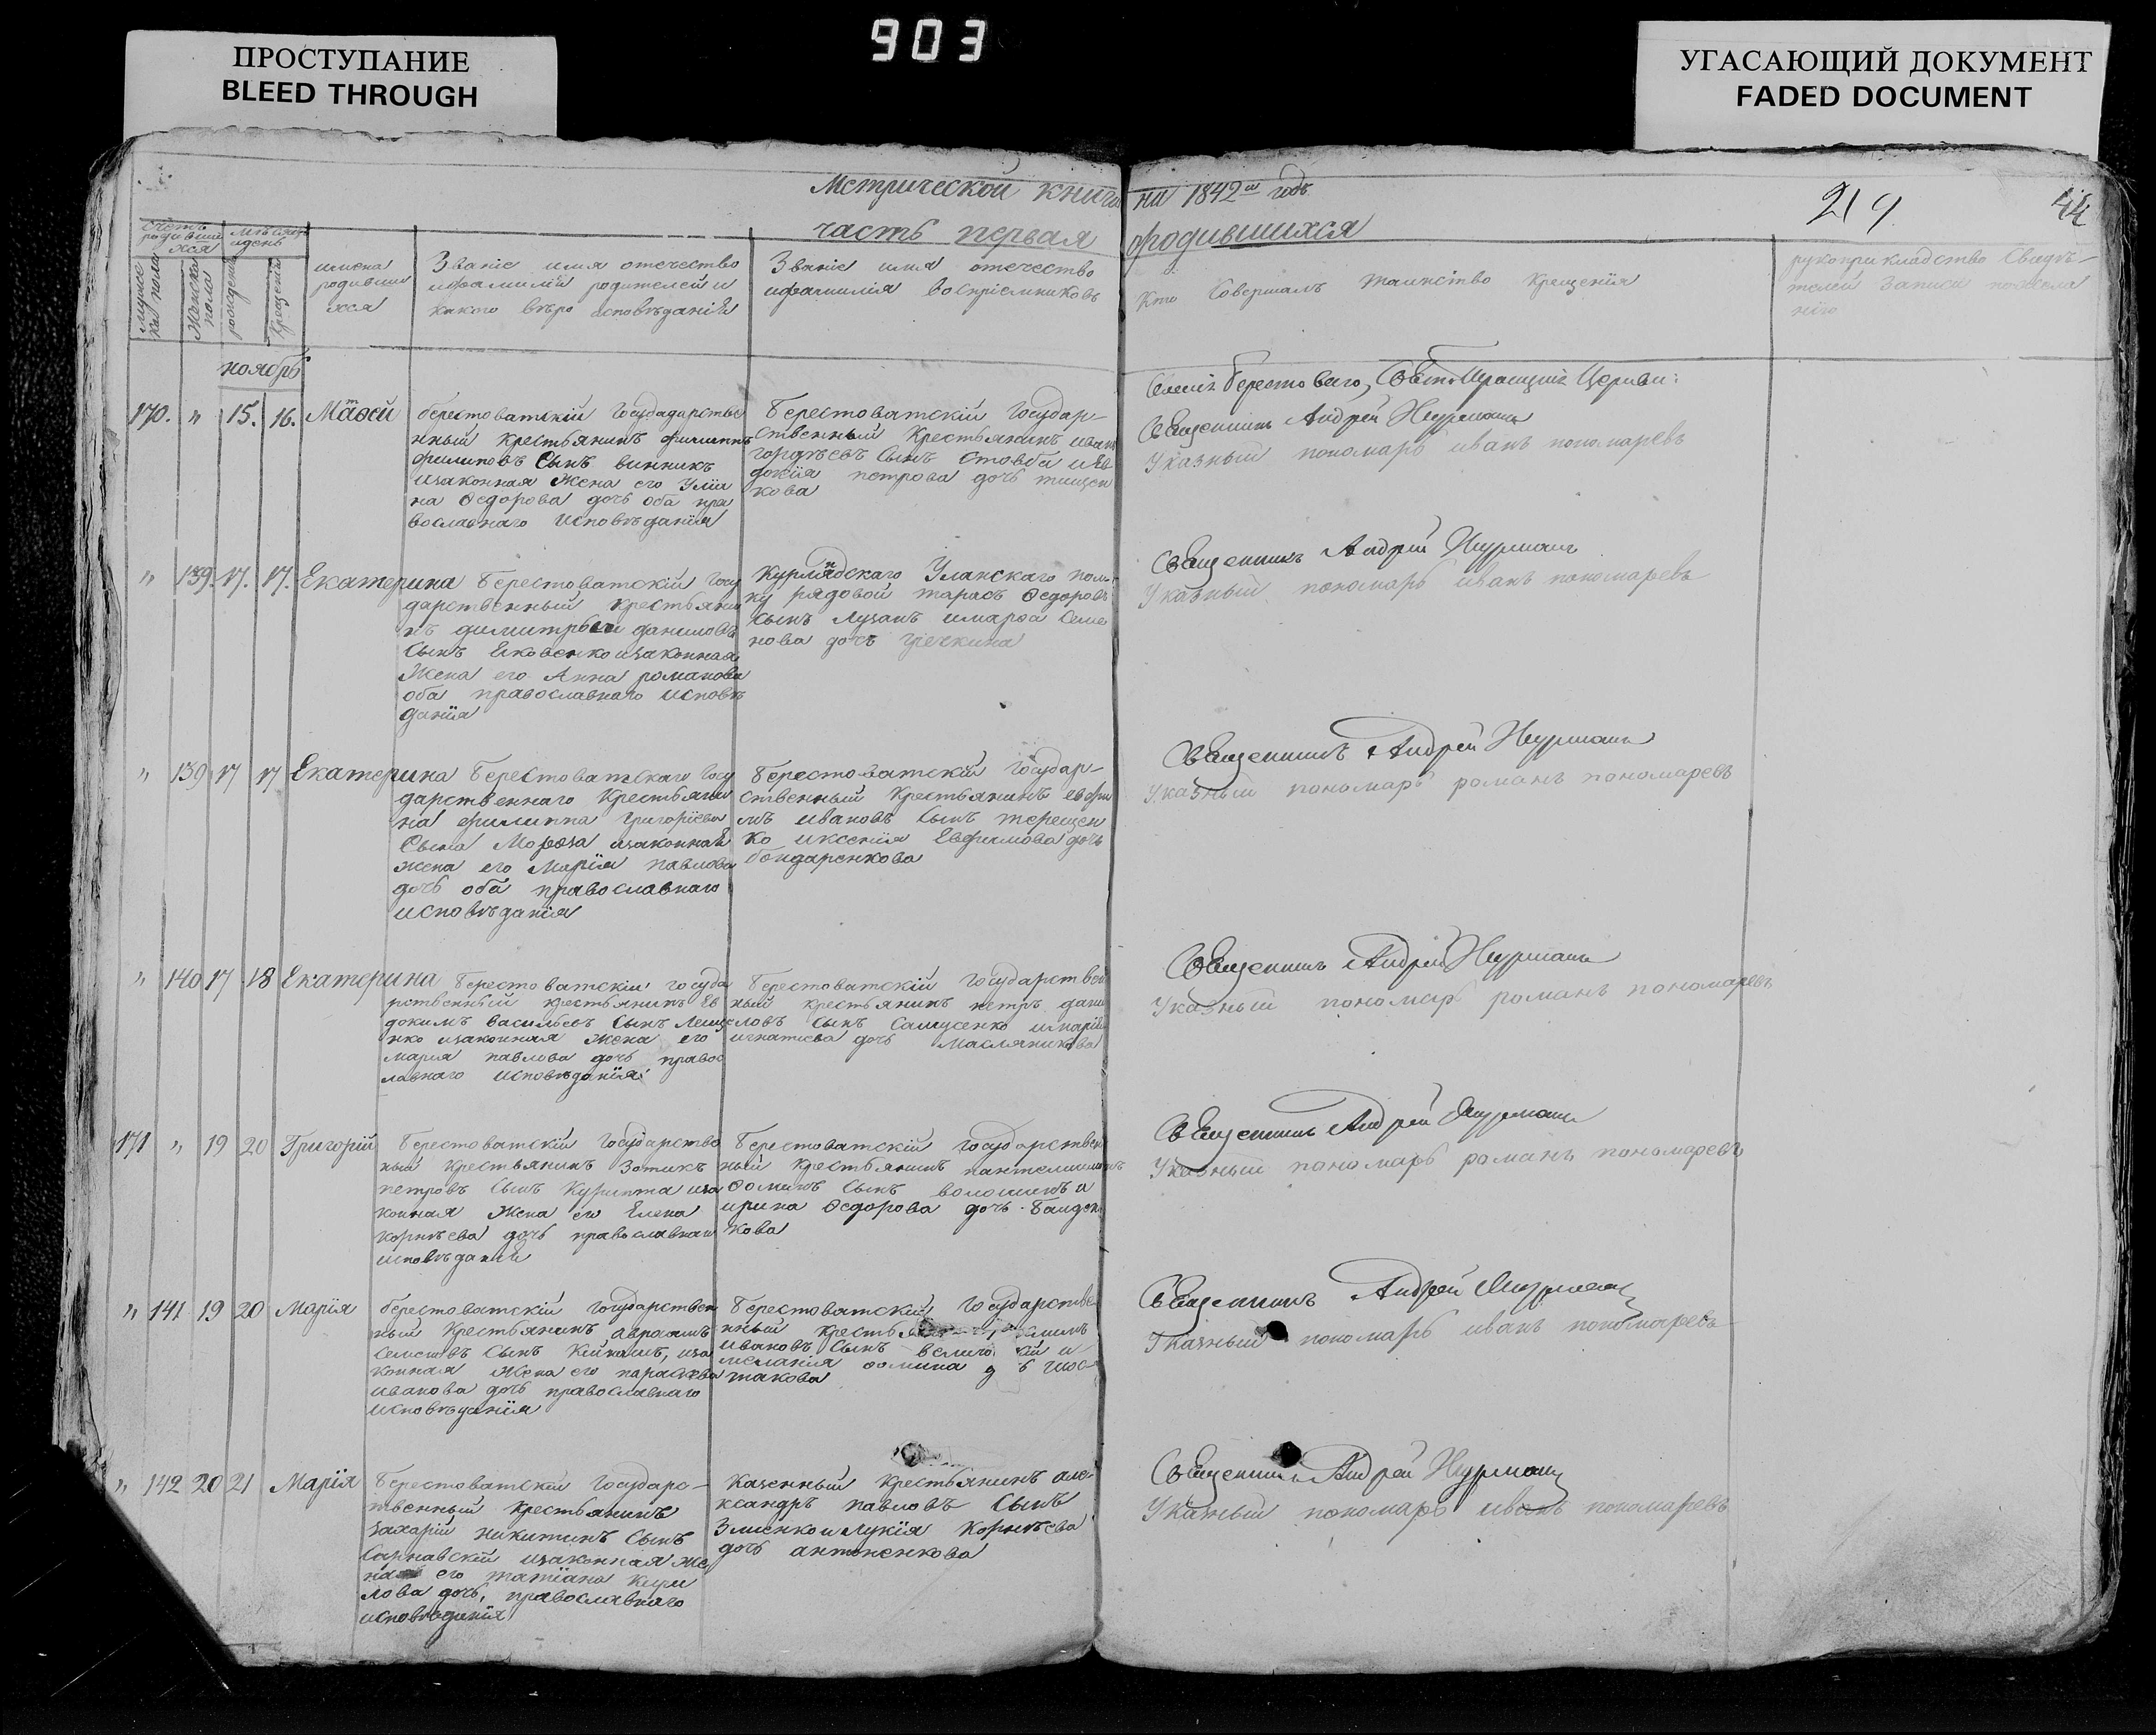 903
ПРОСТУПАНИЕ
BLEED THROUGH
УГАСАЮЩИЙ ДОКУМЕНТ
FADED DOCUMENT
Метрической книги на 1842 годъ
часть первая о родившихся
219
44
имена
родивши
хся
Званіе имя отечество
ифамилій родителей и
какого вѣро исповѣданія
Званіе имя отечество
ифамилія воспріемниковъ
Кто Совершалъ таинство Крещенія
рукоприкладство Свидѣ-
телей Записи
Мужес
ка пола
Женска
пола
рожденія
Крещенія
ноябрь
170. " 15. 16. Матѳей
берестоватскій Государарстве
нный крестьянинъ филиппъ
филиповъ Сынъ винникъ
изаконная Жена его Улія
на Ѳедорова дочь оба пра
вославнаго исповѣданія
Берестоватскій Государ-
ственный Крестьянинъ иванъ
Сынъ Стовба иЕв
докія петрова дочь тищен
кова
Священникъ Андрей
Указный пономарь иванъ пономаревъ
" 139. 17. 17. Екатерина
Берестоватскій Госу
дарственный крестьяни
нъ димитрьей даниловъ
Сынъ изаконная
Жена его Анна романова
оба православнаго исповѣ
данія
Курляндскаго Уланскаго пол
ку рядовой тарасъ Ѳедоровъ
Сынъ Лузанъ имарѳа Семе
нова дочь
Священникъ Андрей
Указный пономарь иванъ пономаревъ
" 139 17 17 Екатерина
Берестоватскаго Госу
дарственнаго Крестьяни
на филиппа григоріева
Сына Мороза изаконная
жена его Марія павлова
дочь оба православнаго
исповѣданія
Берестоватскій Государ-
ственный Крестьянинъ евфи
мъ ивановъ Сынъ терещен
ко иксенія Евфимова дочь
бондаренкова
Священникъ Андрей
Указный пономарь романъ пономаревъ
" 140 17 18 Екатерина
Берестоватскій госуда
рственный крестьянинъ Ев
докимъ васильевъ Сынъ Леще
нко изаконная Жена его
мария павлова дочь правос
лавнаго исповѣданія
Берестоватскій Государствен
ный крестьянинъ петръ дани
ловъ Сынъ Самусенко имарія
игнатіева дочь Масляникова
Священникъ Андрей
Указный пономарь романъ пономаревъ
171 " 19 20 Григорій
Берестоватскій Государстве
ный крестьянинъ Зотикъ
петровъ Сынъ Курипта иза
конная Жена его Елена
корнѣева дочь православнаго
исповѣданій
Берестоватскій Государствен
ный крестьянинъ пантелимонъ
Ѳоминъ Сынъ волошинъ и
ирина Ѳедорова дочь
кова
Священникъ Андрей
Указный пономарь романъ пономаревъ
" 141 19 20 Марія
берестоватскій Государствен
ный Крестьянинъ авраамъ
Сынъ иза
конная Жена его параскева
иванова дочь православнаго
исповѣданія
Берестоватскій Государстве
нный
ивановъ Сынъ
меланія Ѳомина
такова
Священникъ Андрей
Указный пономарь иванъ пономаревъ
" 142 20 21 Марія
Берестоватскій Государс-
твенный крестьянинъ
захарій никитинъ Сынъ
Сарнавскій изаконная же
на его татіана кири
лова дочь, православнаго
исповѣданія
Казенный крестьянинъ але
ксандръ павловъ Сынъ
Змиенко иЛукія Корнѣева
дочь антоненкова
Священникъ Андрей
Указный пономарь иванъ пономаревъ